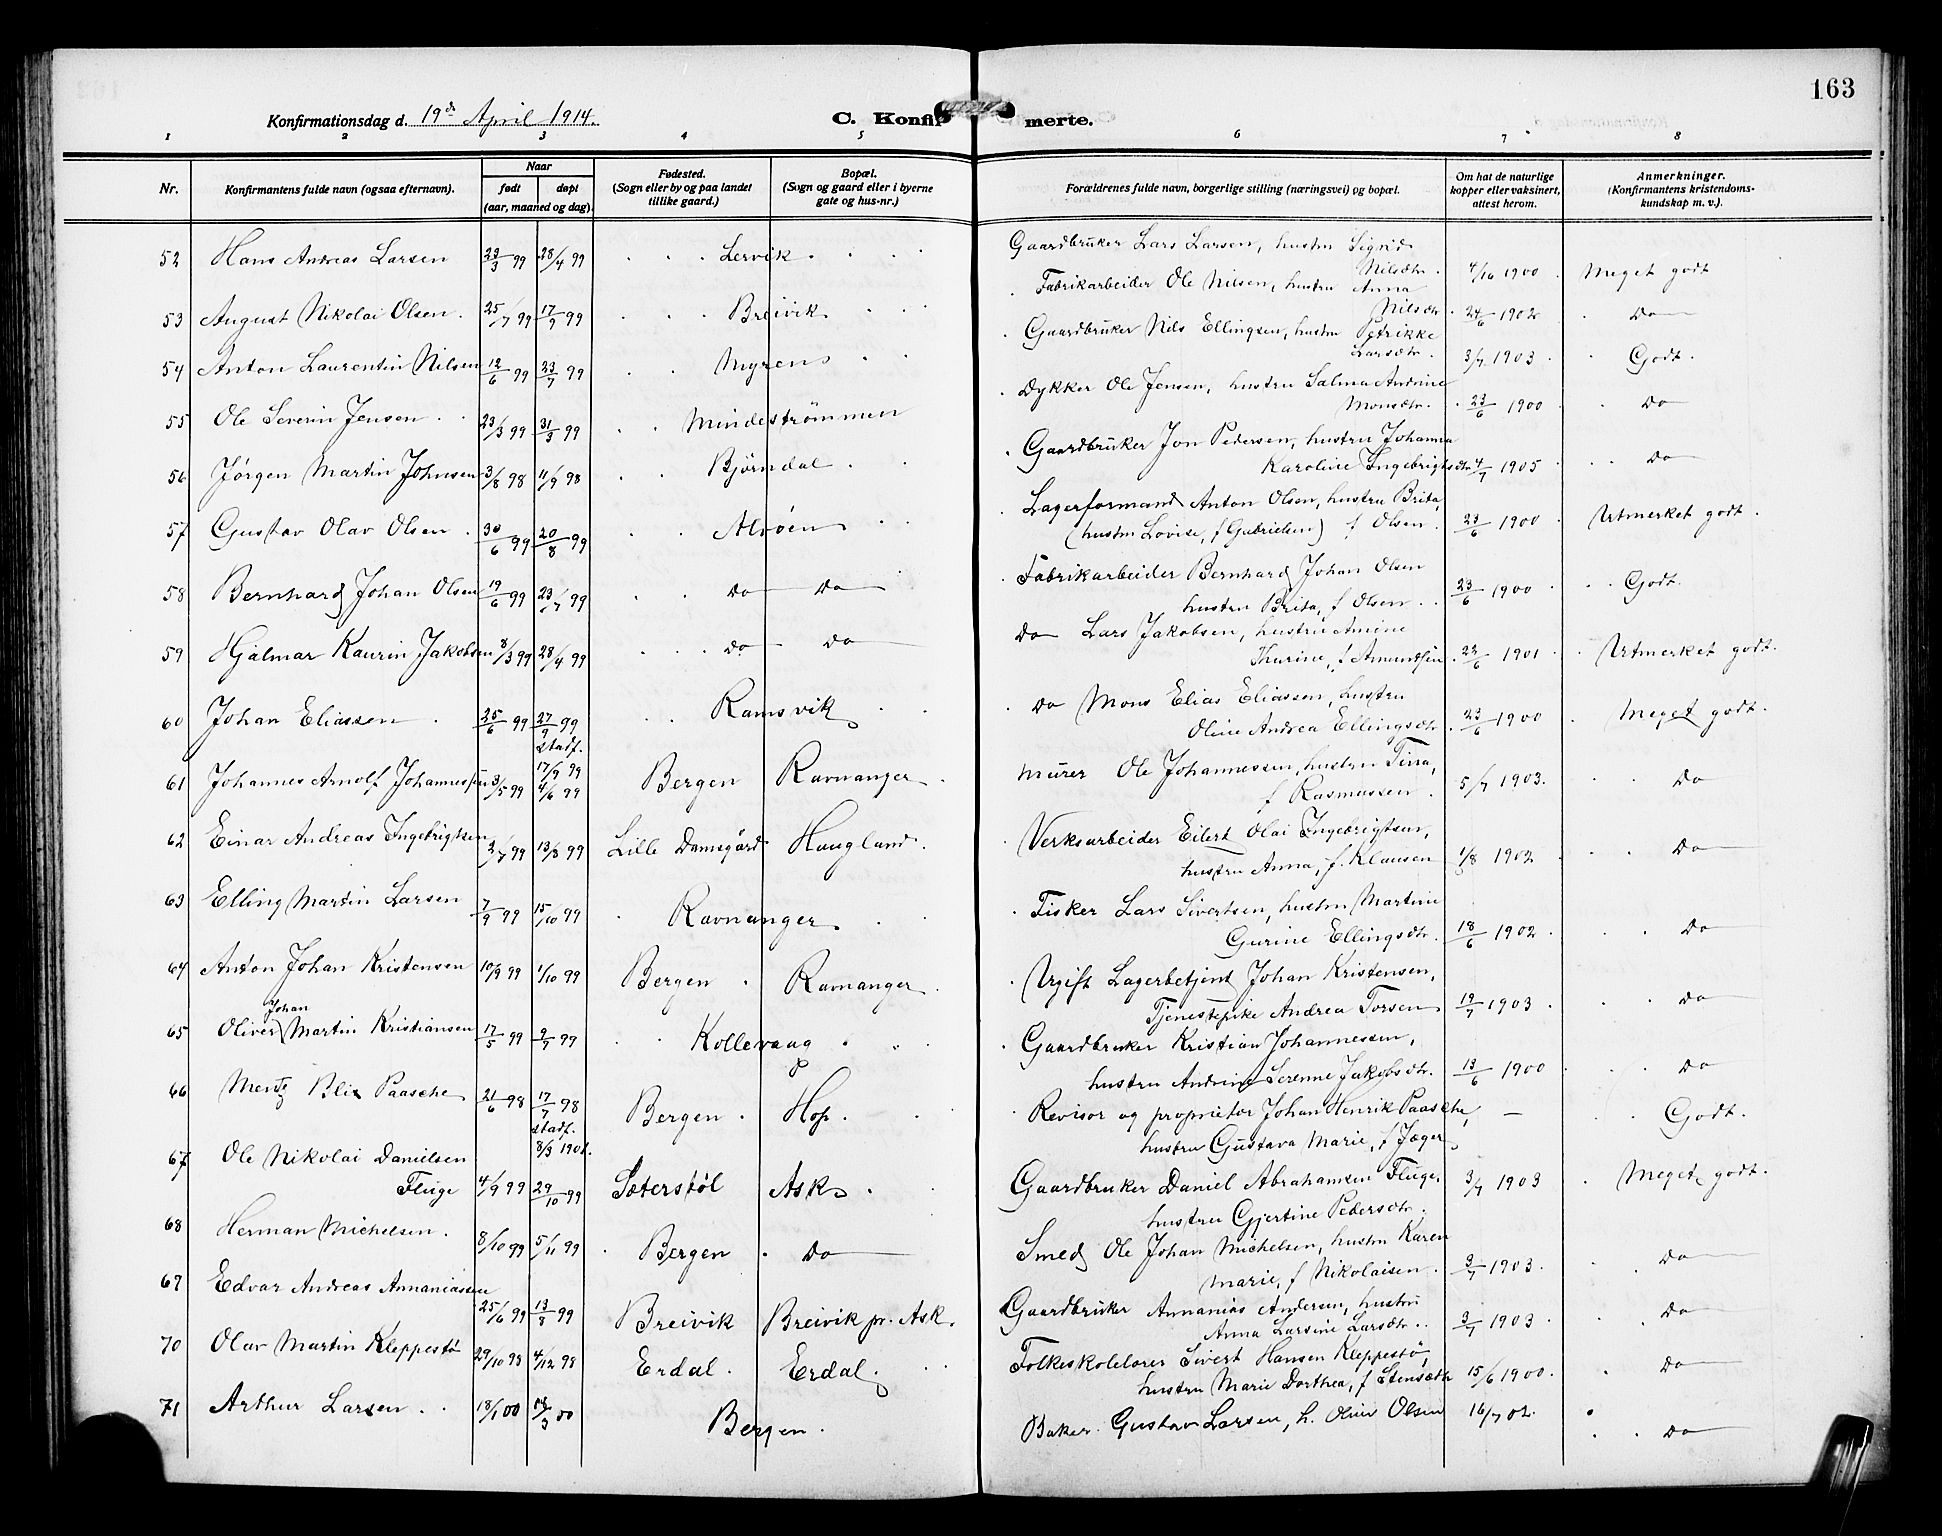 163
Konfirmationsdag d. 19de April 1914.
C. Konfirmerte.
1 2 3 4 5 6 7 8
Nr.
Konfirmantens fulde navn (ogsaa efternavn).
Naar
født
døpt
(aar, maaned og dag).
Fødested.
(Sogn eller by og paa landet
tillike gaard.)
Bopæl.
(Sogn og gaard eller i byerne
gate og hus-nr.)
Forældrenes fulde navn, borgerlige stilling (næringsvei) og bopæl.
Om hat de naturlige
kopper eller vaksinert,
attest herom.
Anmerkninger.
(Konfirmantens kristendoms-
kundskap m. v.).
52 Hans Andreas Larsen 23/3 99 28/4 99 Lervik Gaardbruker Lars Larsen, hustru Sigrid
Nilsdtr. 4/10 1900 Meget godt
53 August Nikolai Olsen 25/7 99 17/9 99 Breivik Fabrikarbeider Ole Nilsen, hustru Anna
Nilsdtr. 24/6 1902 Do
54 Anton Laurentin Nilsen 12/6 99 23/7 99 Myrens Gaardbruker Nils Ellingsen, hustru Petrikke
Larsdtr. 3/7 1903 Godt.
55 Ole Severin Jensen 23/3 99 31/3 99 Mindestrømmen Dykker Ole Jensen, hustru Salma Andrine
Monsdtr. 23/6 1900 Do
56 Jørgen Martin Johnsen 3/8 98 11/9 98 Bjørndal Gaardbruker Jon Pedersen, hustru Johanna
Karoline Ingebrigtsdtr 4/7 1905 Do
57 Gustav Olav Olsen 30/6 99 20/8 99 Alvøen Lagerformand Anton Olsen, hustru Brita,
(hustru Lovise, f Gabrielsen) f Olsen. 23/6 1900 Utmerket godt.
58 Bernhard Johan Olsen 19/6 99 23/7 99 Do Do Fabrikarbeider Bernhard Johan Olsen
hustru Brita, f Olsen. 23/6 1900 Godt.
59 Hjalmar Kaurin Jakobsen 8/3 99 28/4 99 Do Do Do Lars Jakobsen, hustru Amine
Thurine, f Amundsen 22/6 1901 Utmerket godt.
60 Johan Eliassen 25/6 99 27/9 99 Ramsvik Do Mons Elias Eliassen, hustru
Oline Andrea Ellingsdtr. 23/6 1900 Meget godt.
stadf.
17/9 99
61 Johannes Arnolf Johannessen 3/5 99 4/6 99 Bergen Ravnanger Murer Ole Johannessen, hustru Tina,
f Rasmussen. 5/7 1903. Do
62 Einar Andreas Ingebrigtsen 2/7 99 13/8 99 Lille Damsgård Haugland. Verksarbeider Eilert Olai Ingebrigtsen,
hustru Anna, f. Klausen 1/8 1902 Do
63 Elling Martin Larsen 7/9 99 15/10 99 Ravnanger Fisker Lars Sivertsen, hustru Martine
Gurine Ellingsdtr. 18/6 1902 Do
64 Anton Johan Kristensen 10/9 99 1/10 99 Bergen Ravnanger Ugift Lagerbetjent Johan Kristensen,
Tjenestepike Andrea Torsen 19/7 1903 Do
Johan
65 Oliver Martin Kristiansen 17/5 99 9/7 99 Kollevaag Gaardbruker Kristian Johannessen,
hustru Andrine Serenne Jakobsdtr. 13/6 1900 Do
66 Mentz Blix Paasche 21/6 98 17/7 98 Bergen Hop. Revisor og proprietær Johan Henrik Paasche,
hustru Gustava Marie, f Jæger — Godt.
stadf.
8/3 1901.
67 Ole Nikolai Danielsen
Fluge 4/9 99 29/10 99 Sæterstøl Ask Gaardbruker Daniel Abrahamsen Fluge,
hustru Gjertine Pedersdtr. 3/7 1903 Meget godt.
68 Herman Michelsen. 8/10 99 5/11 99 Bergen Do Smed Ole Johan Michelsen, hustru Karen
Marie, f Nikolaisen. 3/7 1903. Do
69 Edvar Andreas Annaniassen 25/6 99 13/8 99 Breivik Breivik pr. Ask. Gaardbruker Annanias Andersen, hustru
Anna Larsine Larsdtr. 3/7 1903 Do
70 Olav Martin Kleppestø 29/10 98 4/12 98 Erdal. Erdal. Folkeskolelærer Sivert Hansen Kleppestø,
hustru Marie Dorthea, f Stensdtr 15/6 1900. Do
71 Arthur Larsen 18/1 00 /3 00 Bergen. Baker Gustav Larsen, h. Oline Olsen 16/7 02. Do